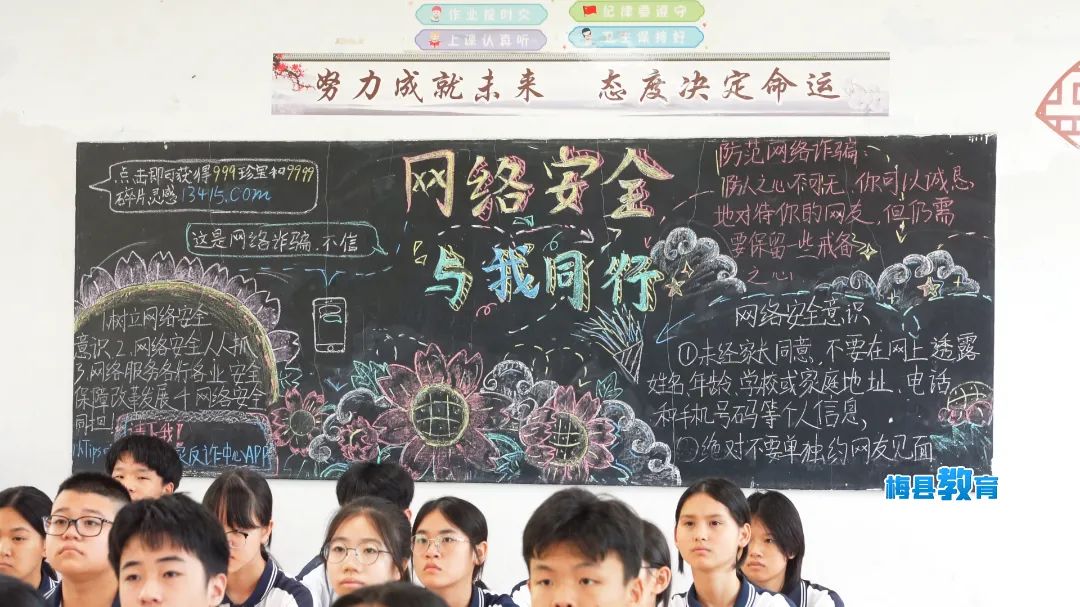 作业按时交
纪律要遵守
上课认真听
卫生保持好
努力成就未来 态度决定命运
点击即可获得999珍宝和9999
碎片灵感13415.COM
这是网络诈骗,不信
网络安全
与我同行
防范网络诈骗:
防人之心不可无,你可以诚恳
地对待你的网友,但仍需
要保留一些戒备
之心
1.树立网络安全
意识2.网络安全人人抓
3.网络服务各行各业安全
保障改革发展4.网络安全
同担
反诈中心APP
网络安全意识
①未经家长同意,不要在网上透露
姓名、年龄、学校或家庭地址、电话
和手机号码等个人信息,
②绝对不要单独约网友见面
梅县教育